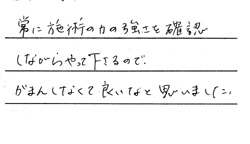 常に施術の力の強さを確認
しながらやって下さるので
がまんしなくて良いなと思いました。